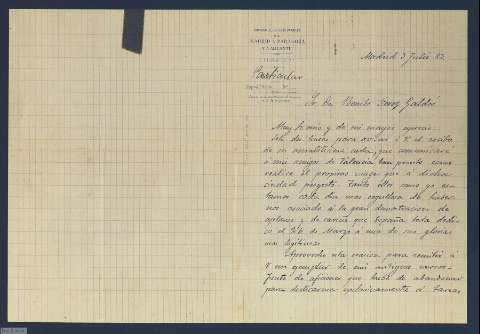 MADRID A ZARAGOZA
Y ALICANTE
Particular
Madrid 3 Julio 02
Sr. Dn. Benito Perez Galdós
Muy Sr. mio y de mi mayor aprecio:
Solo dos lineas para avisar á V. el recibo
de su amabilísima carta, que comunicaré
á mis amigos de Valencia tan pronto como
realice el próximo viaje que á dicha
ciudad proyecto. Tanto ellos como yo es-
tamos cada dia mas orgullosos de haber-
nos asociado á la gran demostracion de
aplauso y de cariño que España toda dedi-
có el de Marzo á una de sus glorias
mas legítimas.
Aprovecho esta ocasion para remitir á
V. un ejemplar de mi antiguo
de aficiones que hube de abandonar
para dedicarme exclusivamente á tareas